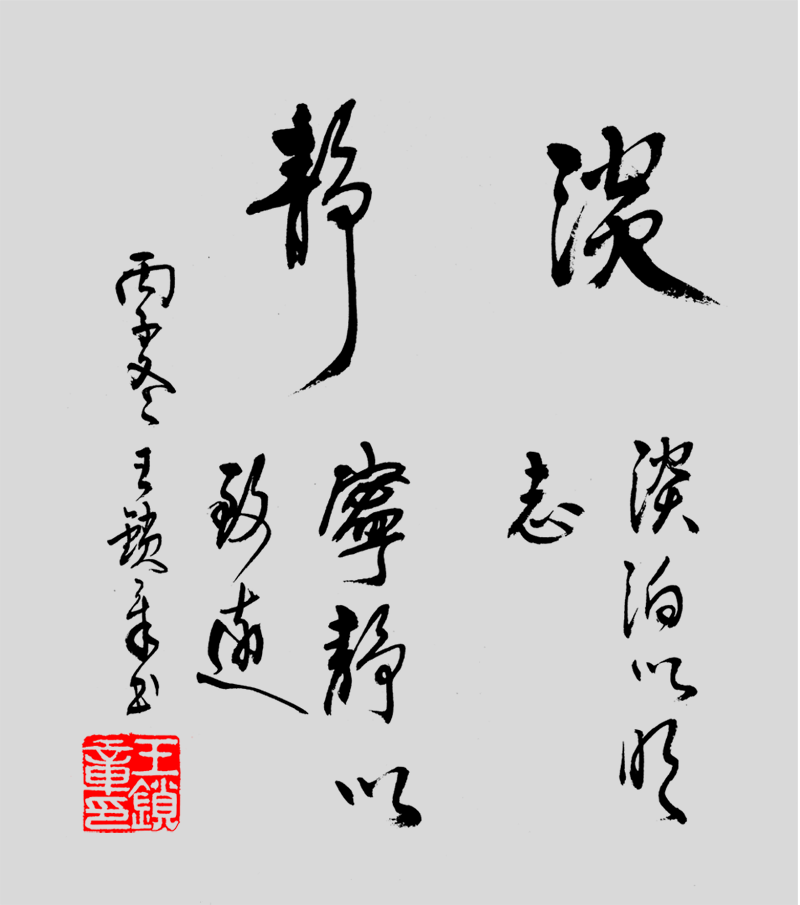 淡
淡泊以明
志
静
寧静以
致遠
丙子冬王鎖章书
王鎖
章印